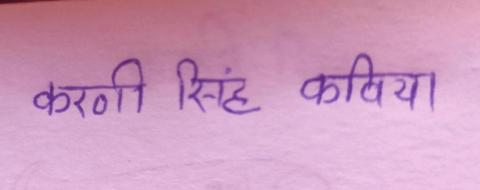 करणी सिंह कविया